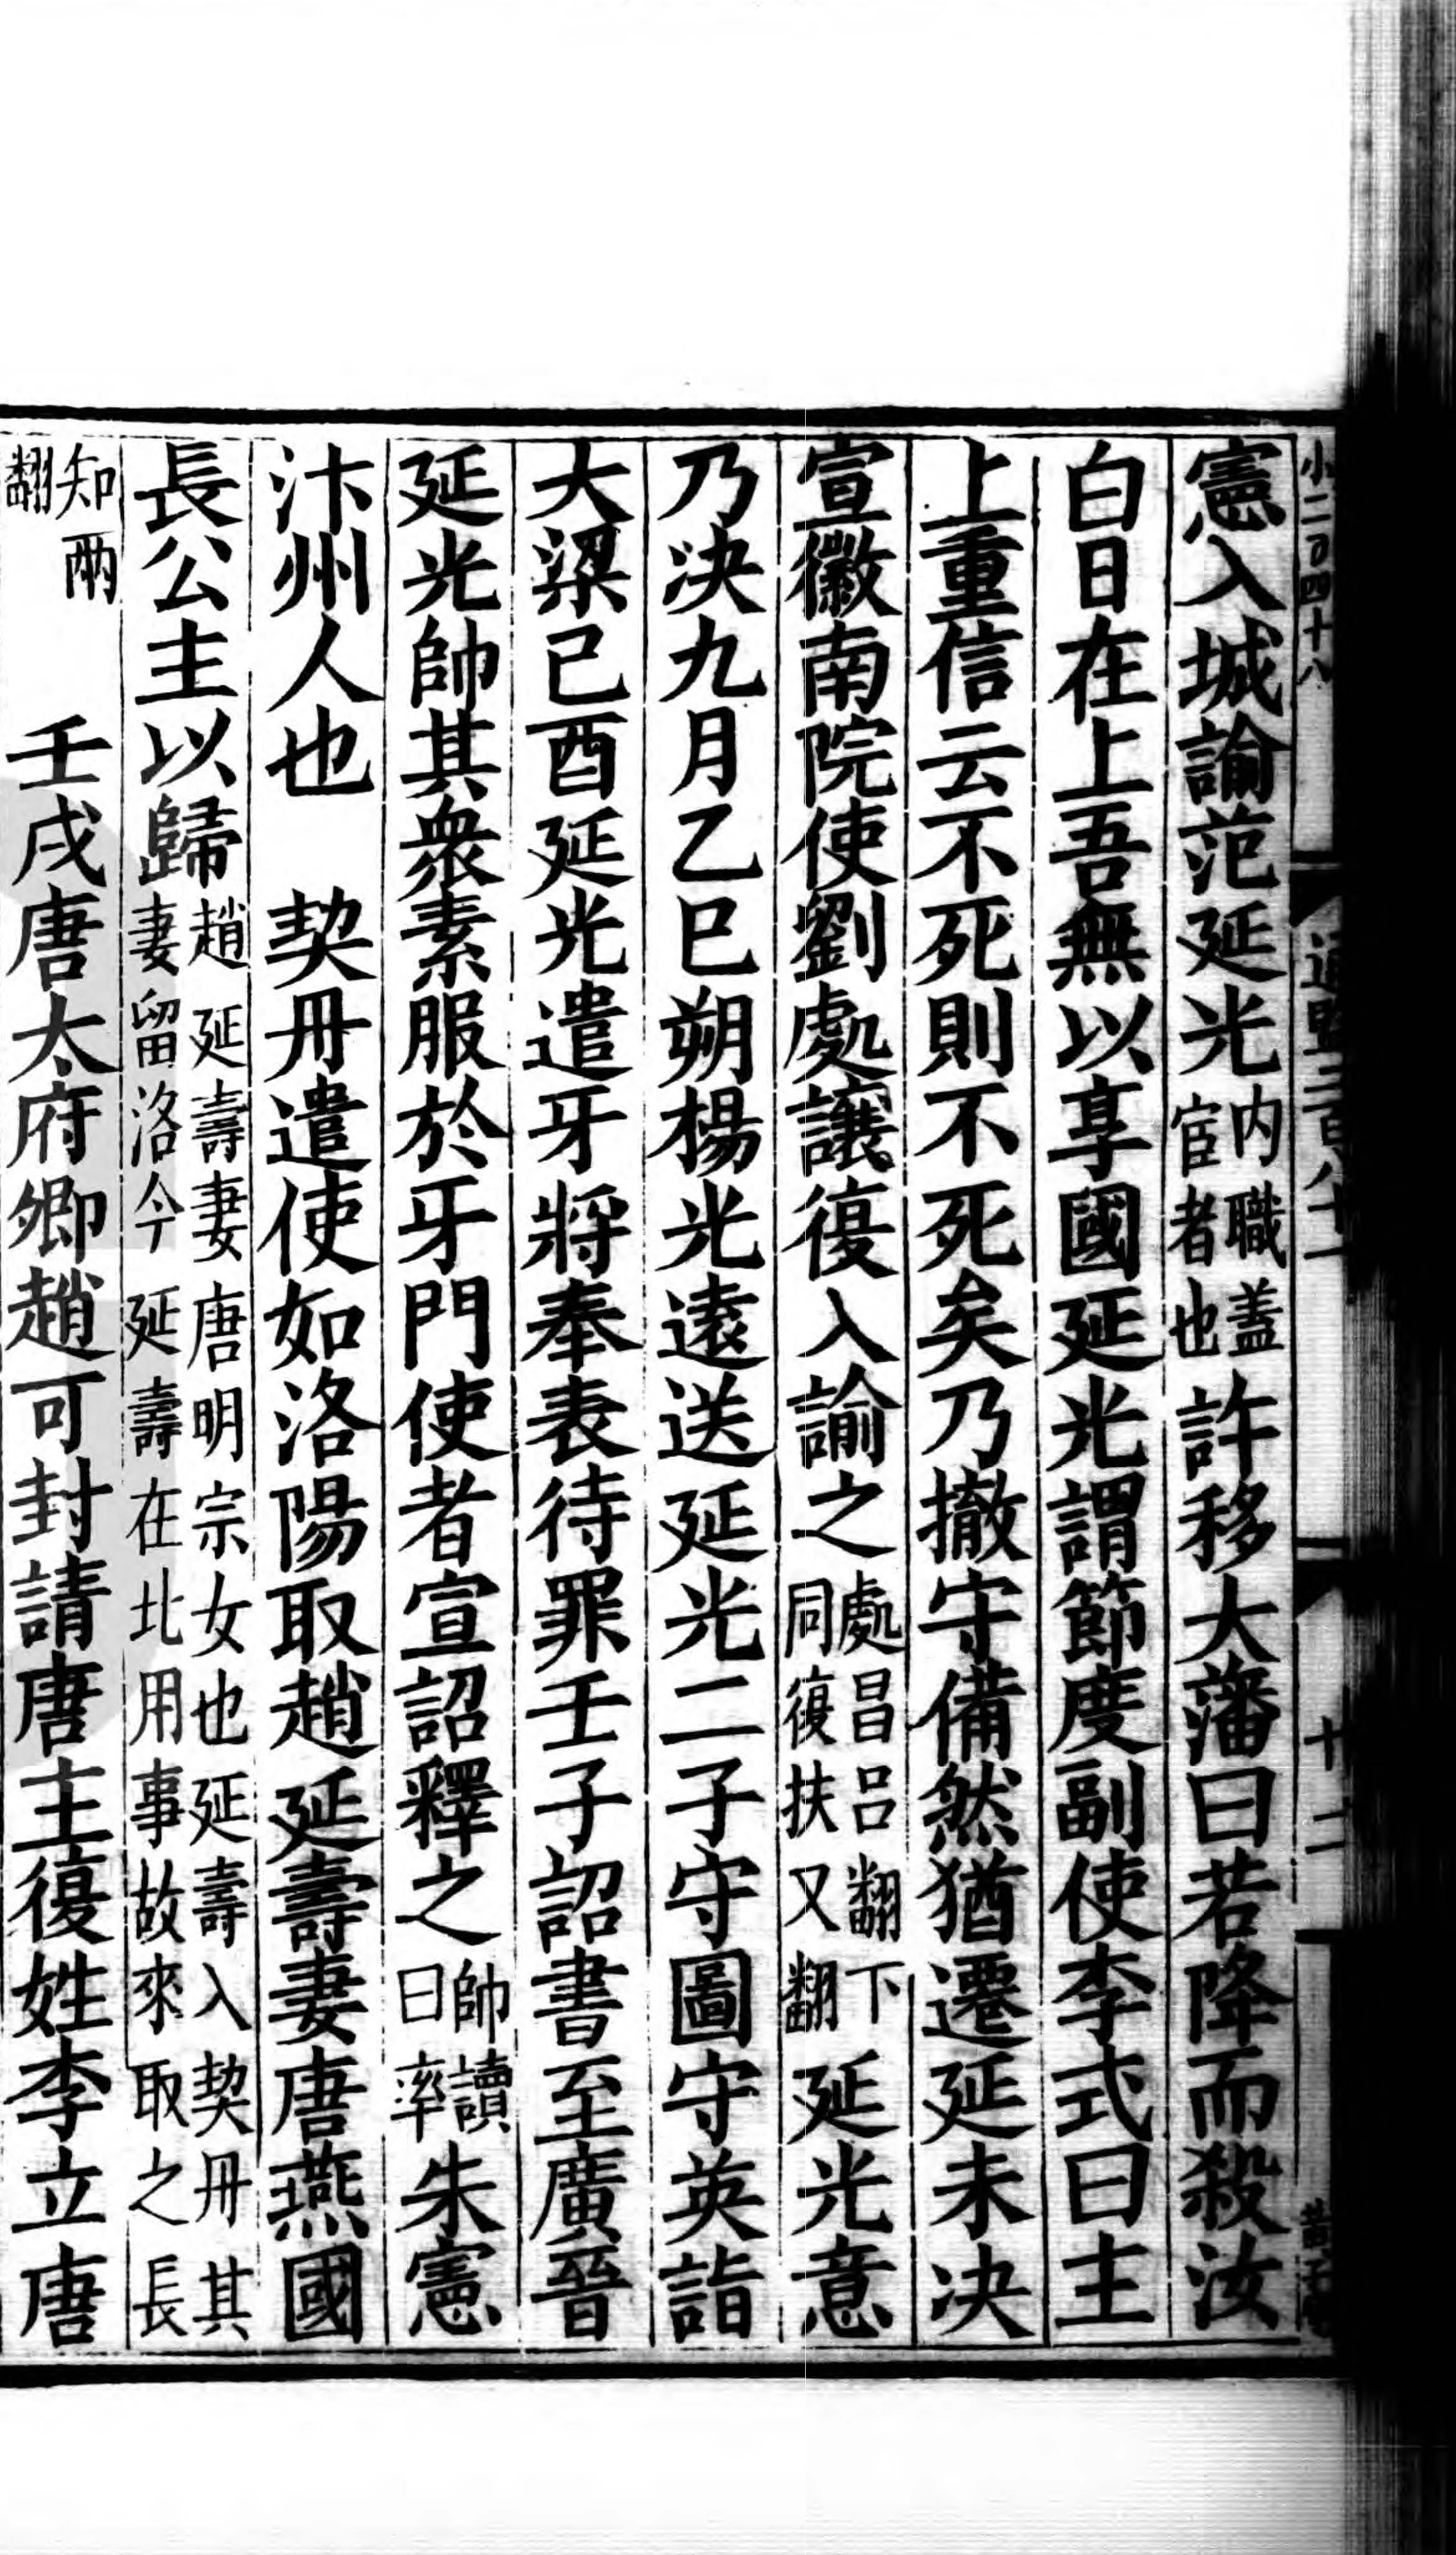 小二百四十八
通鑑二百八十一
十二
憲入城諭范延光内職盖宦者也許移大藩曰若降而殺汝
白日在上吾無以享國延光謂節度副使李式曰主
上重信云不死則不死矣乃撤守備然猶遷延未决
宣徽南院使劉處讓復入諭之處昌吕翻下同復扶又翻延光意
乃决九月乙巳朔楊光遠送延光二子守圖守英詣
大梁己酉延光遣牙將奉表待罪壬子詔書至廣晉
延光帥其衆素服於牙門使者宣詔釋之帥讀曰率朱憲
汴州人也　契丹遣使如洛陽取趙延壽妻唐燕國
長公主以歸趙延壽妻唐明宗女也延壽入契丹其妻留洛今延壽在北用事故來取之長
知兩翻　壬戌唐太府卿趙可封請唐主復姓李立唐